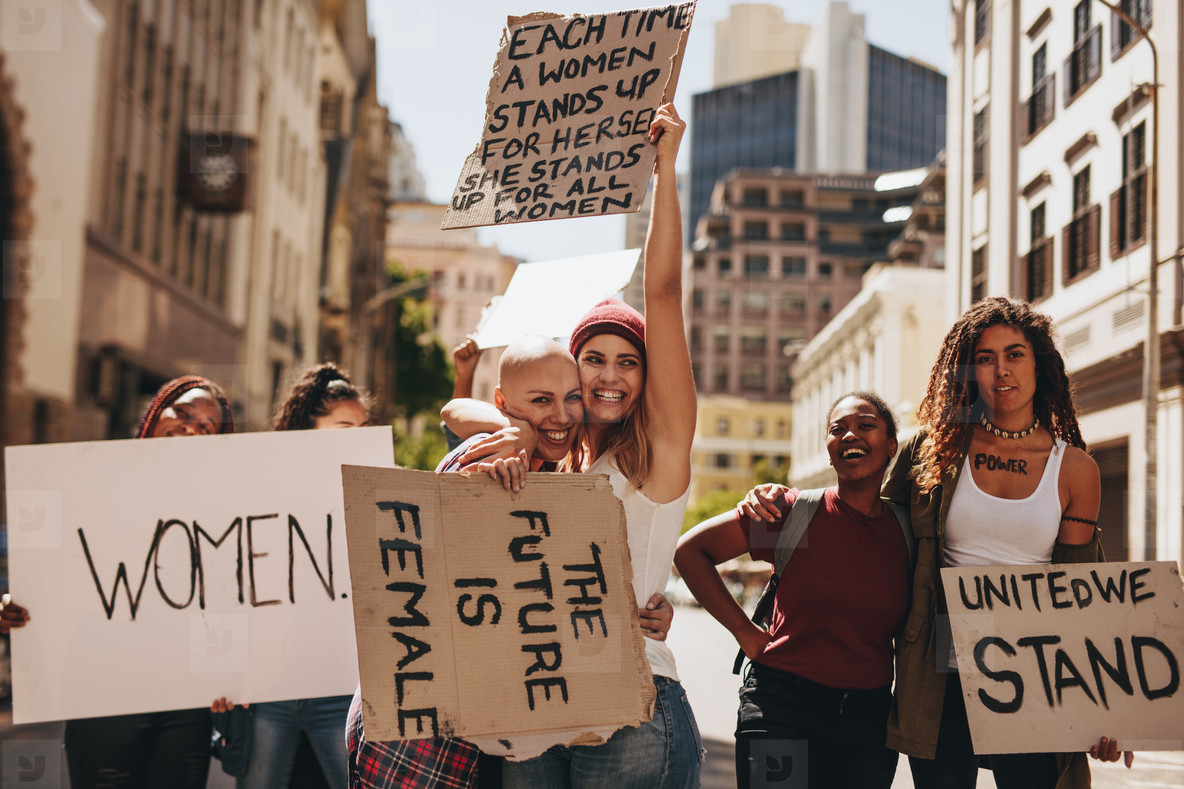 EACH TIME
A WOMEN
STANDS UP
FOR HERSE
SHE STANDS
UP FOR ALL
WOMEN
WOMEN.
THE
FUTURE
IS
FEMALE
POWER
UNITED WE
STAND